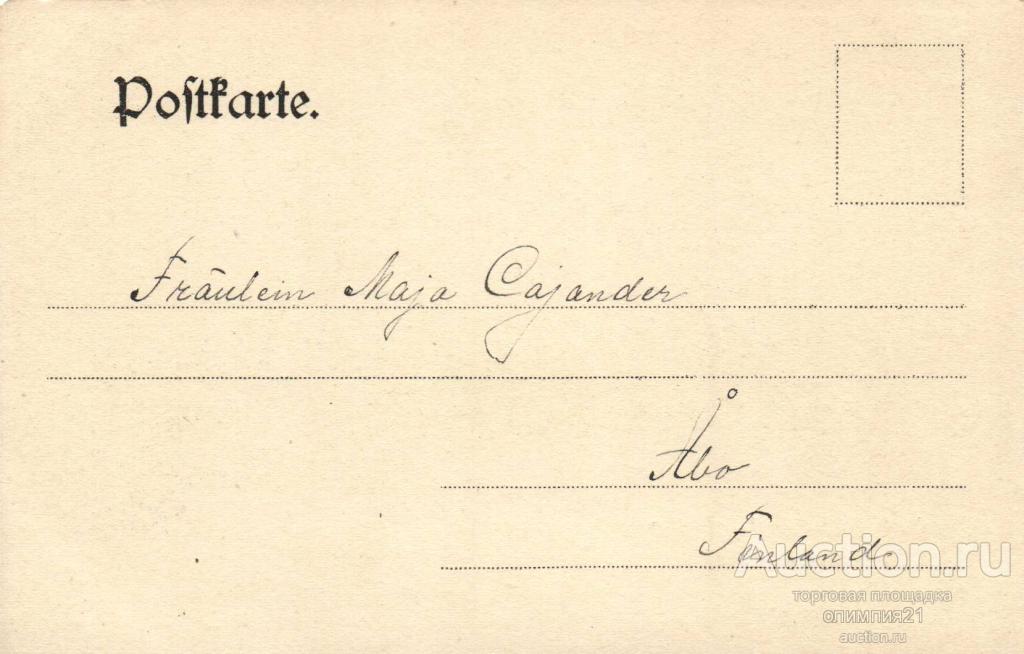 Postkarte.
Fräulein Maja Cajander
Åbo
Finland
Auction.ru
торговая площадка
олимпия21
auction.ru